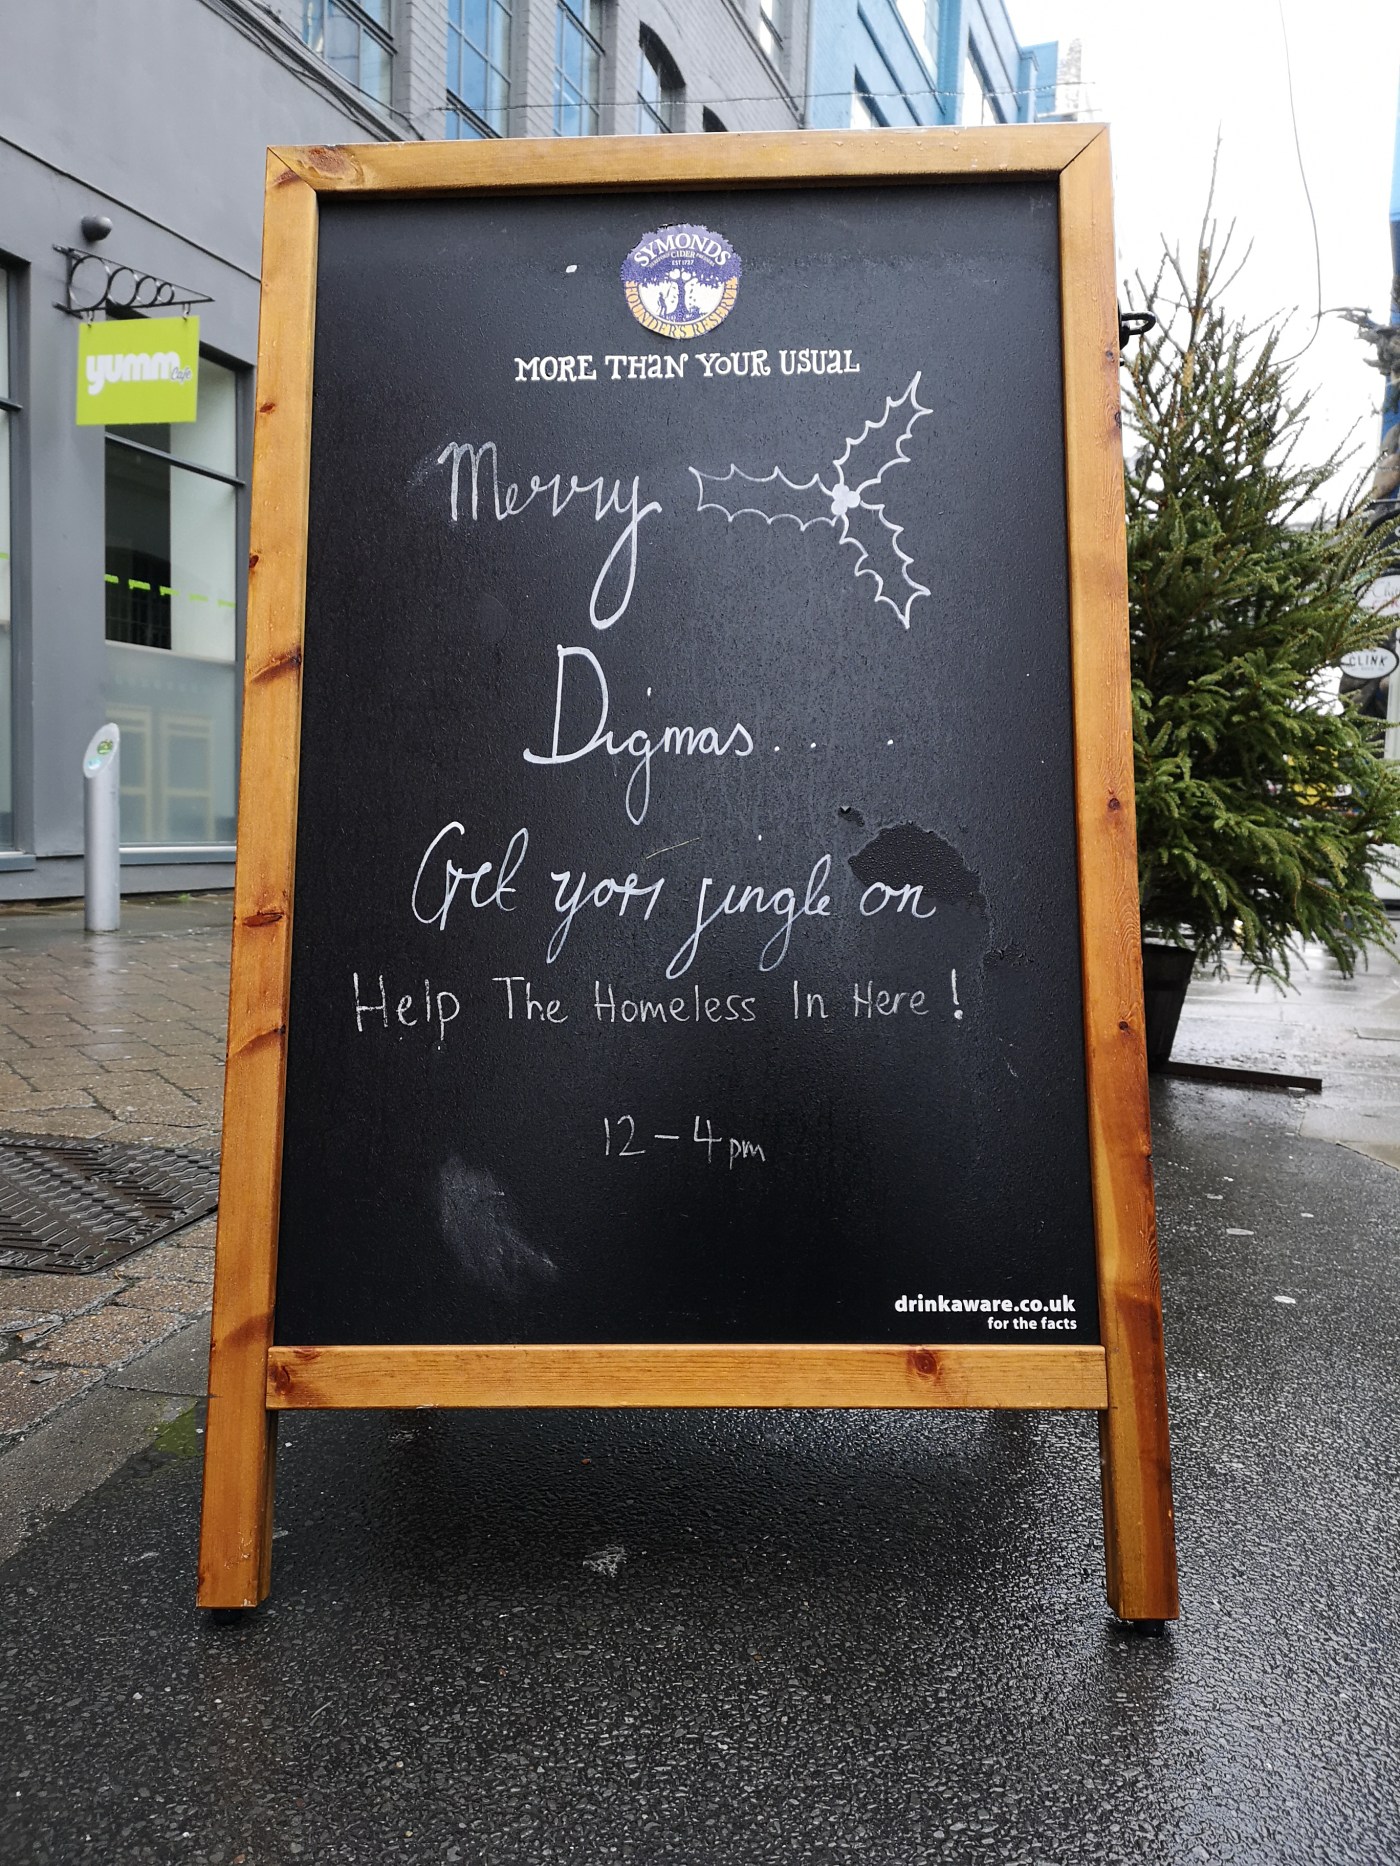 SYMONDS
CIDER
EST 1727
FOUNDERS RESERVE
MORE THAN YOUR USUAL
Merry
Digmas...
Get your jingle on
Help The Homeless In Here!
12-4pm
drinkaware.co.uk
for the facts
yumm Cafe
CLINK